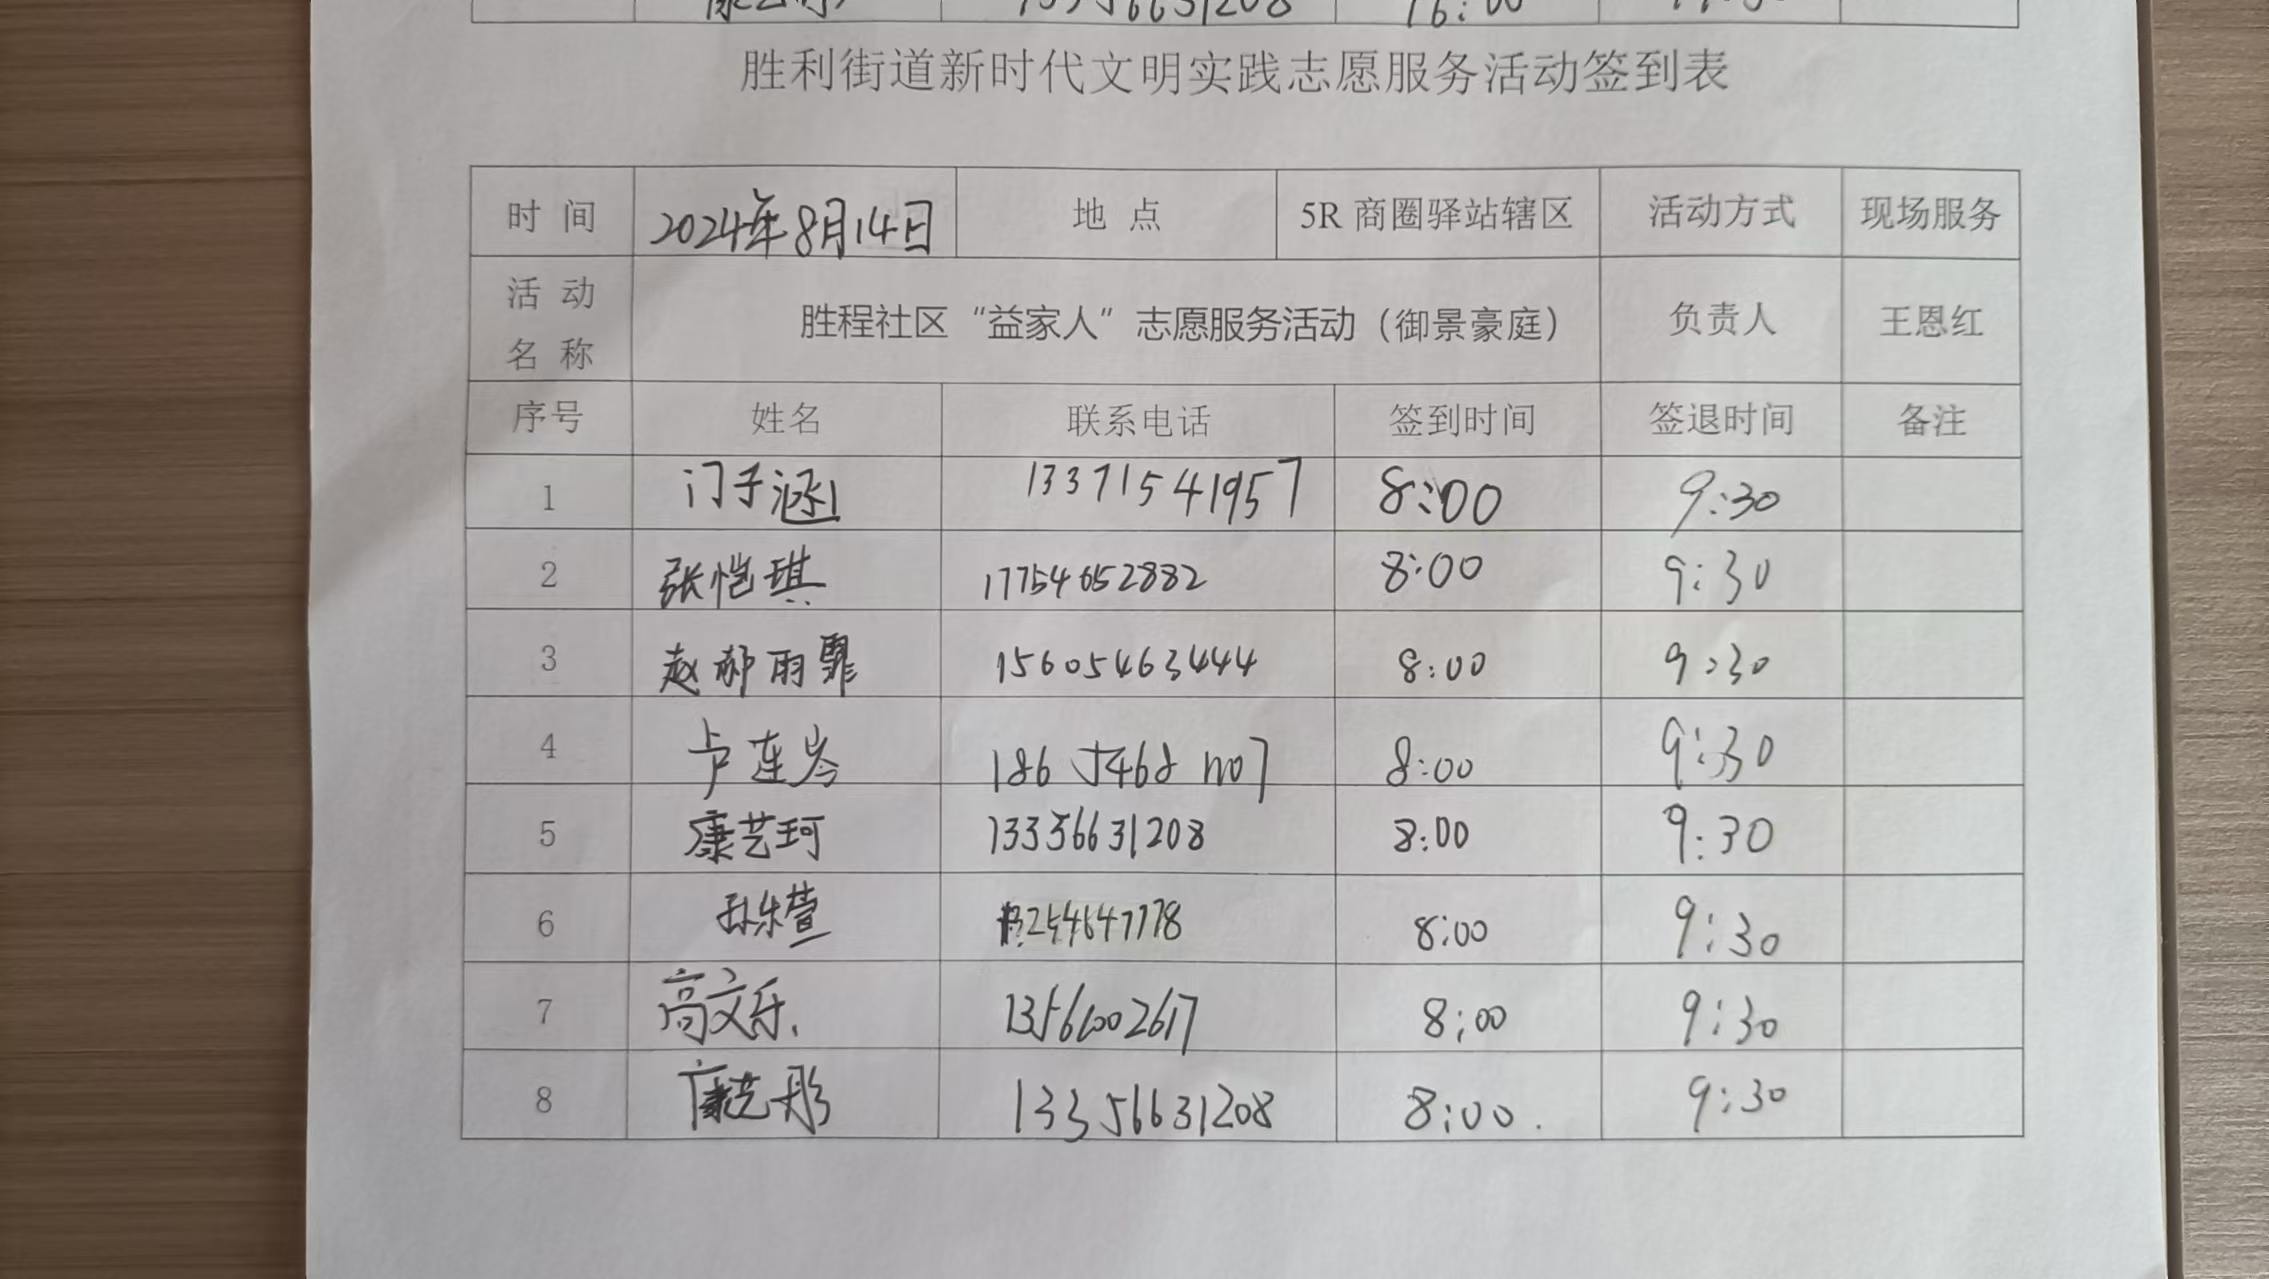 13356631208 16:00
胜利街道新时代文明实践志愿服务活动签到表
时 间 2024年8月14日 地 点 5R 商圈驿站辖区 活动方式 现场服务
活 动 名 称 胜程社区“益家人”志愿服务活动（御景豪庭） 负责人 王恩红
序号 姓名 联系电话 签到时间 签退时间 备注
1 门子涵 13371541957 8:00 9:30
2 张恺琪 17754652882 8:00 9:30
3 赵郝雨霏 15605463444 8:00 9:30
4 卢连岑 18654681107 8:00 9:30
5 康艺珂 13356631208 8:00 9:30
6 孙乐萱 13254647778 8:00 9:30
7 高文乐 13561002617 8:00 9:30
8 康艺彤 13356631208 8:00 9:30